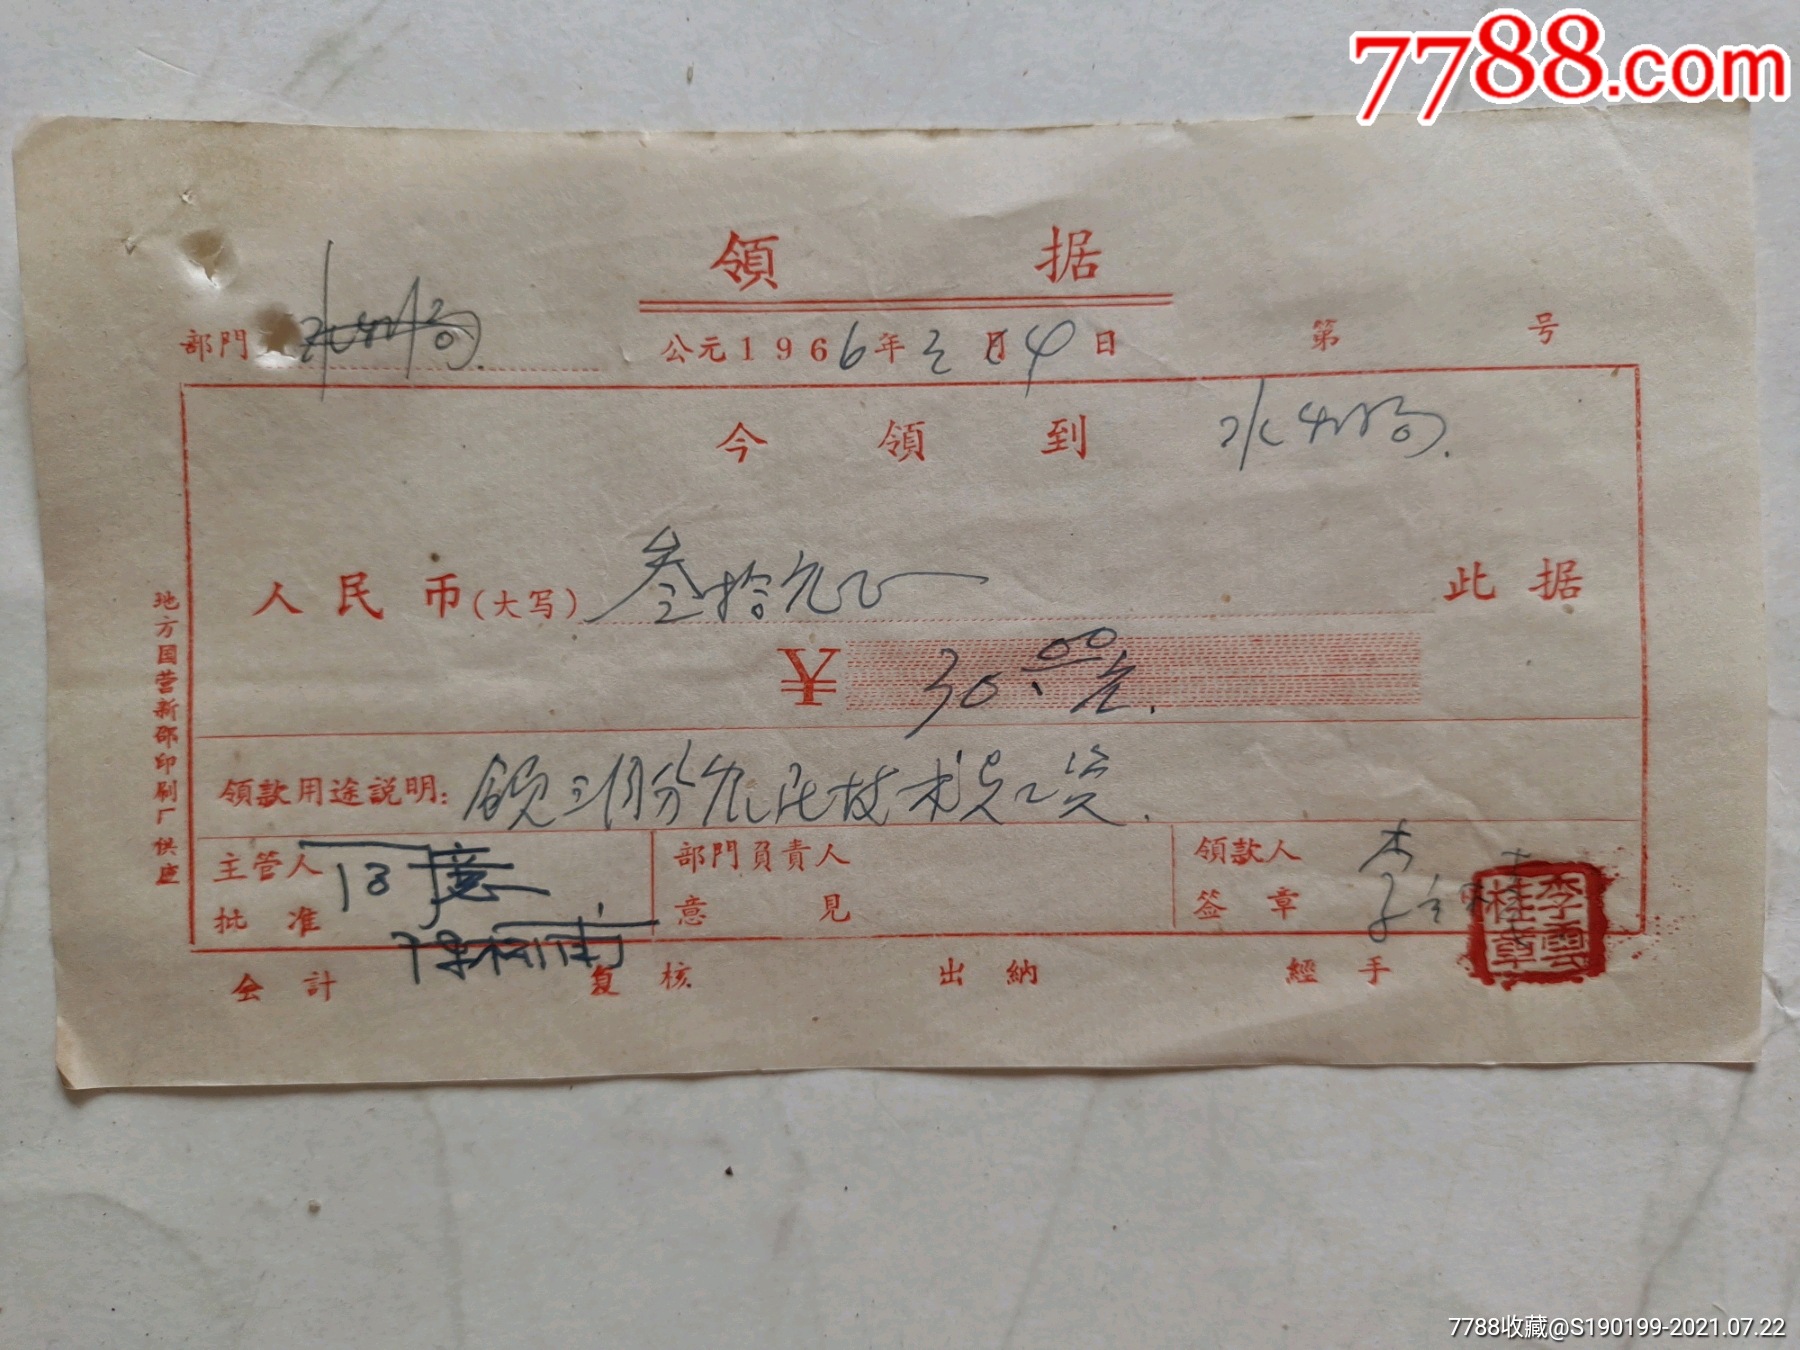 7788.com
領 据
部門
公元1966年3月4日 第 号
今 領 到 水利局.
人民币(大写) 叁拾元正 此据
¥ 30.00元.
領款用途説明: 领三月份农民技术员工资.
主管人 同意 部門負責人 領款人 李
批准 意見 签章
李雲桂章
会計 复核 出納 經手
地方国营新邵印刷厂供应
7788收藏@S190199-2021.07.22